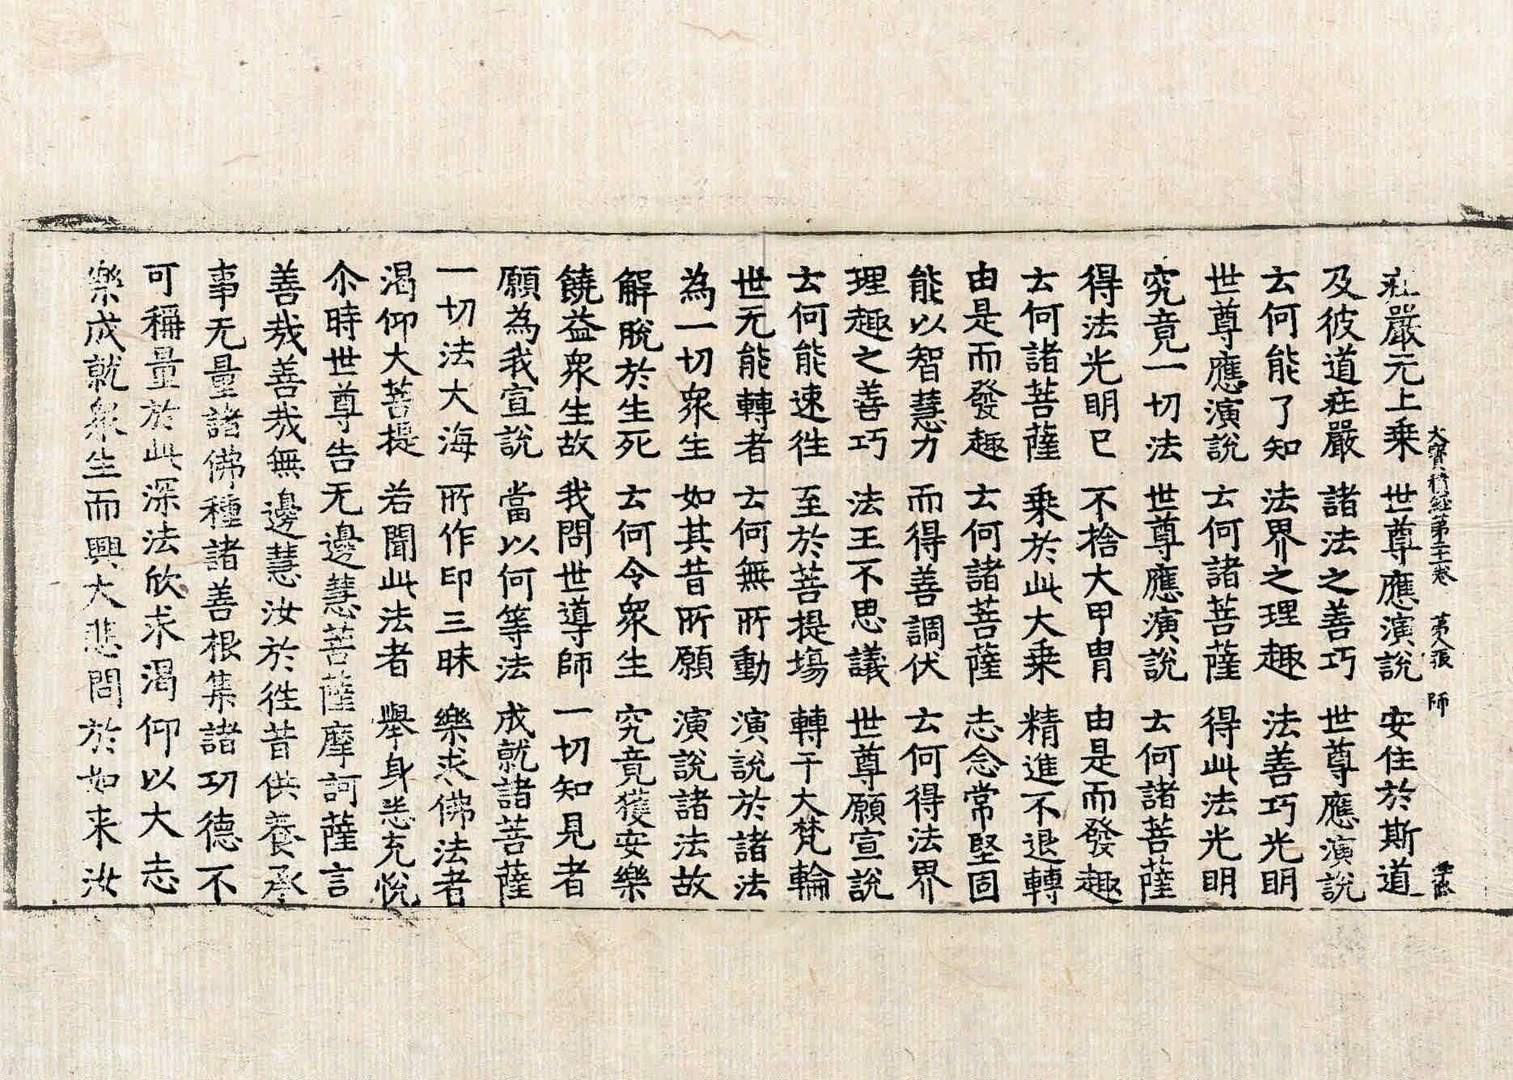 大寶積經第二十二卷 第八張 師
莊嚴无上乘 世尊應演說 安住於斯道
及彼道莊嚴 諸法之善巧 世尊應演說
云何能了知 法界之理趣 法善巧光明
世尊應演說 云何諸菩薩 得此法光明
究竟一切法 世尊應演說 云何諸菩薩
得法光明已 不捨大甲冑 由是而發趣
云何諸菩薩 乘於此大乘 精進不退轉
由是而發趣 云何諸菩薩 志念常堅固
能以智慧力 而得善調伏 云何得法界
理趣之善巧 法王不思議 世尊願宣說
云何能速徃 至於菩提場 轉于大梵輪
世无能轉者 云何無所動 演說於諸法
為一切衆生 如其昔所願 演說諸法故
解脫於生死 云何令衆生 究竟獲安樂
饒益衆生故 我問世導師 一切知見者
願為我宣說 當以何等法 成就諸菩薩
一切法大海 所作印三昧 樂求佛法者
渴仰大菩提 若聞此法者 舉身悉充悅
尒時世尊告无邊慧菩薩摩訶薩言
善哉善哉無邊慧汝於徃昔供養承
事无量諸佛種諸善根集諸功德不
可稱量於此深法欣求渴仰以大志
樂成就衆生而興大悲問於如来汝